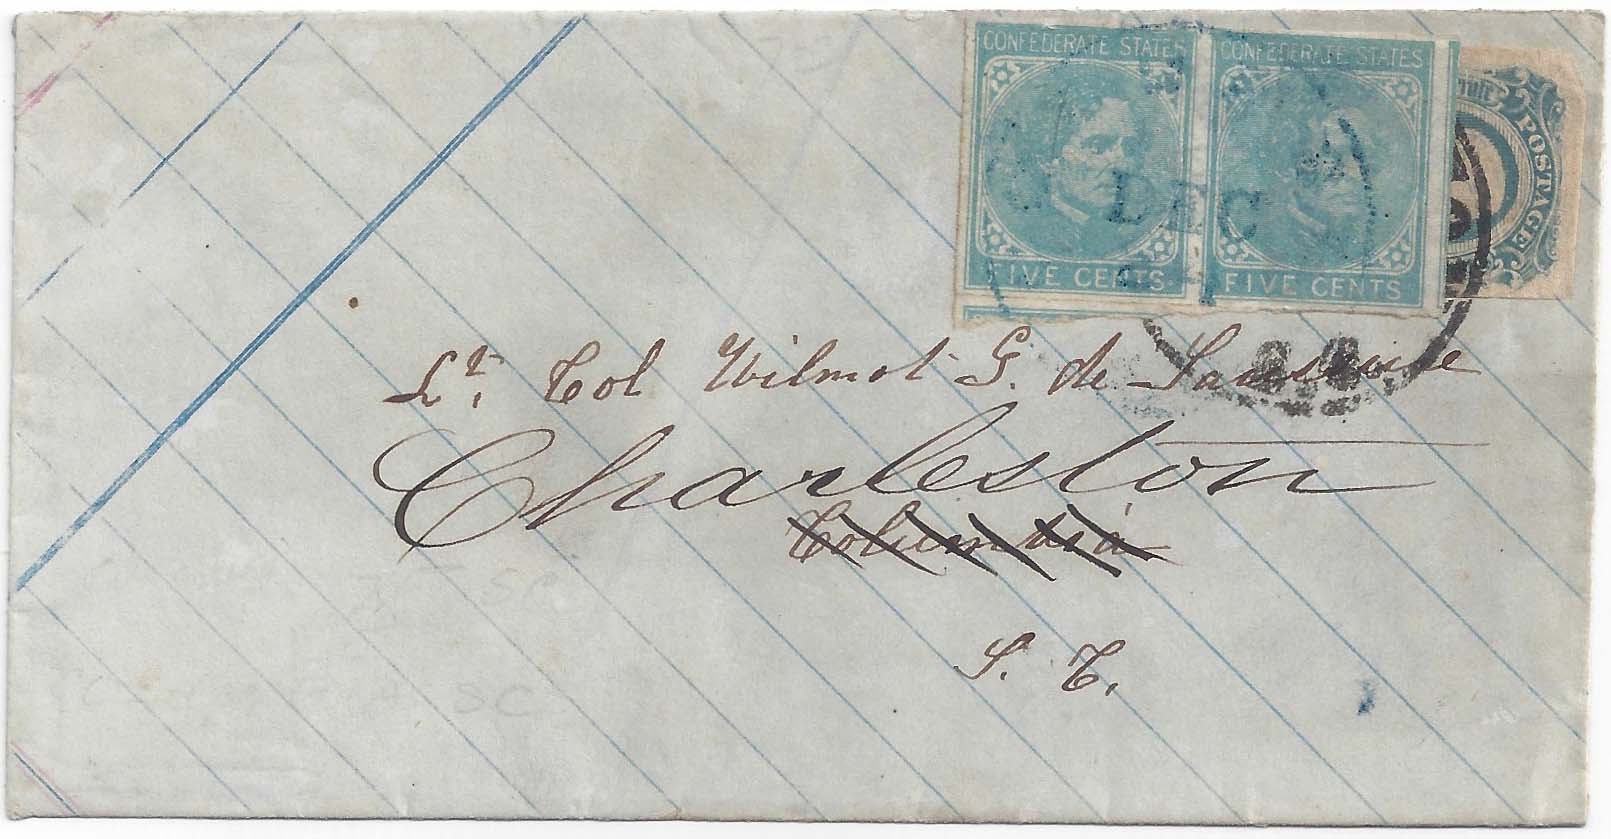 CONFEDERATE STATES CONFEDERATE STATES
POSTAGE
DEC
FIVE CENTS FIVE CENTS
Lt. Col Wilmot G. de Saussure
Charleston
Columbia
S. C.
SC
SC